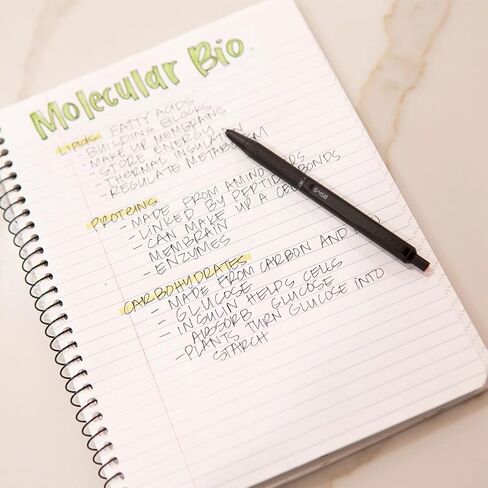 Molecular Bio
LIPIDS: FATTY ACIDS
- BUILDING BLOCKS
- MAKE UP MEMBRANE
- STORE ENERGY
- THERMAL INSULATION
- REGULATE METABOLISM
PROTEINS
- MADE FROM AMINO
- LINKED BY PEPTIDE BONDS
- CAN MAKE UP A CELL
MEMBRANE
- ENZYMES
CARBOHYDRATES
- MADE FROM CARBON AND
- GLUCOSE
- INSULIN HELPS CELLS
ABSORB GLUCOSE
- PLANTS TURN GLUCOSE INTO
STARCH